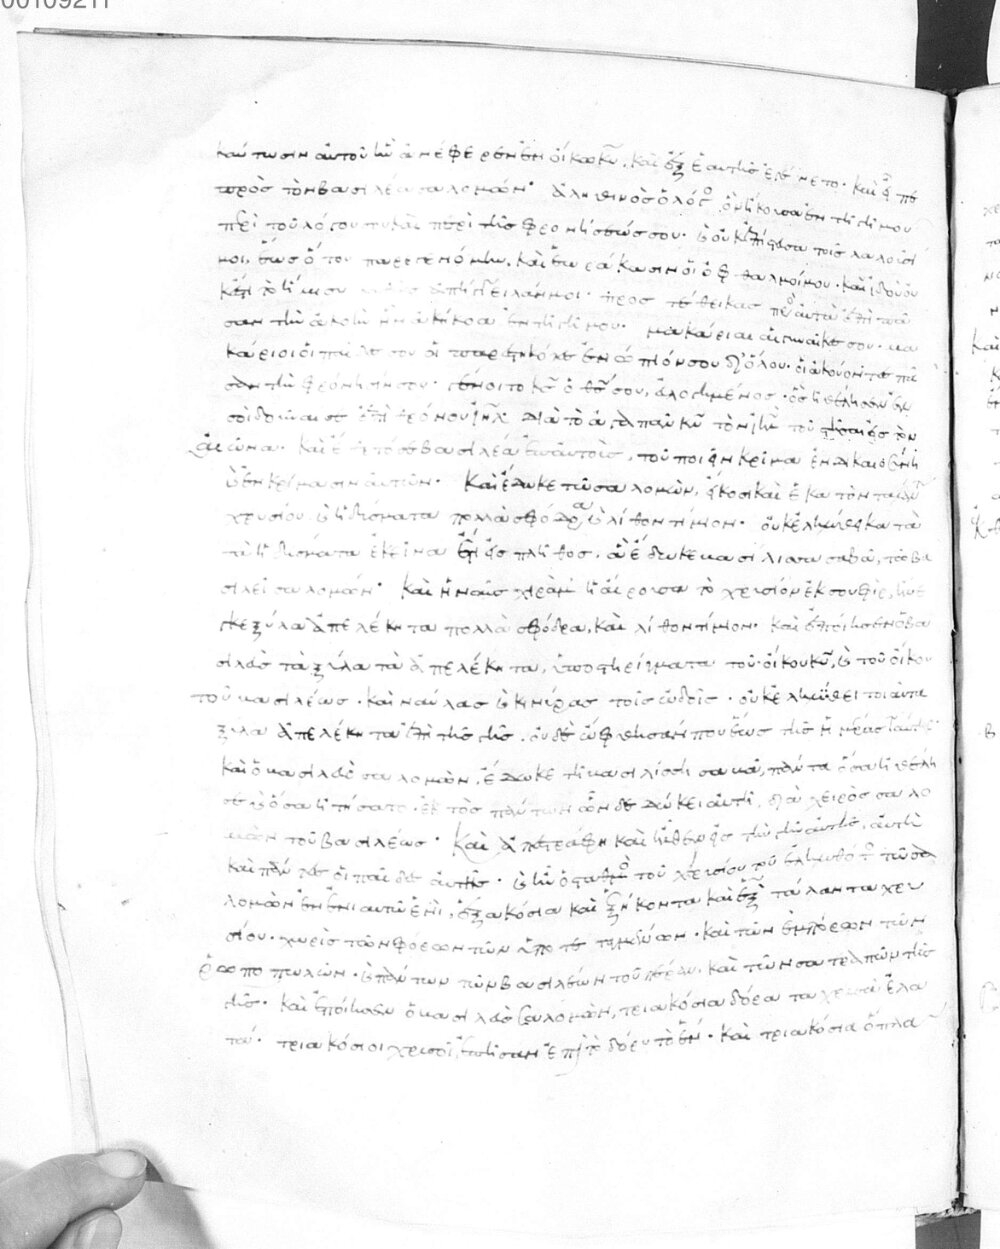 00109211
καύτωσιν αὐτοῦ ἣν ἀνέφερεν ἐν οἴκω κυ, καὶ ἐξ ἑαυτῆς ἐγένετο. καὶ εἶπε
πρὸς τὸν βασιλέα σαλομών. ἀληθινὸς ὁ λόγος, ὃν ἤκουσα ἐν τῆ γῆ μου
περὶ τοῦ λόγου σου καὶ περὶ τῆς φρονήσεώς σου. καὶ οὐκ ἐπίστευσα τοῖς λαλοῦσί
μοι, ἕως ὅτου παρεγενόμην, καὶ ἑωράκασιν οἱ ὀφθαλμοί μου. καὶ ἰδοὺ οὐ
κ ἔστι τὸ ἥμισυ καθὼς ἀπήγγειλάν μοι. προστέθεικας πρὸς αὐτὰ ἐπὶ πᾶ
σαν τὴν ἀκοὴν ἣν ἀκήκοα ἐν τῆ γῆ μου. μακάριαι αἱ γυναῖκές σου. μα
κάριοι οἱ παῖδές σου οἱ παρεστηκότες ἐνώπιόν σου δι' ὅλου. οἱ ἀκούοντες πᾶ
σαν τὴν φρόνησίν σου. γένοιτο κς ὁ θς σου, εὐλογημένος. ὃς ἠθέλησεν ἐν
σοὶ δοῦναί σε ἐπὶ θρόνου ιηλ. διὰ τὸ ἀγαπᾶν κν τὸν ιηλ τοῦ στῆσαι εἰς τὸν
αἰῶνα. καὶ ἔθετό σε βασιλέα ἐπ' αὐτοῖς, τοῦ ποιεῖν κρίμα ἐν δικαιοσύνη
καὶ ἐν κρίμασιν αὐτῶν. καὶ ἔδωκε τῶ σαλομών, εἴκοσι καὶ ἑκατὸν τάλαντα
χρυσίου, καὶ ἡδύσματα πολλὰ σφόδρα, καὶ λίθον τίμιον. οὐκ ἐληλύθει κατὰ
τὰ ἡδύσματα ἐκεῖνα ἔτι εἰς πλῆθος, ἃ ἔδωκε βασίλισσα σαβὰ, τῶ βα
σιλεῖ σαλομών. καὶ ἡ ναῦς χιρὰμ ἡ αἴρουσα τὸ χρυσίον ἐκ σουφὶρ, ἤνε
γκε ξύλα ἀπελέκητα πολλὰ σφόδρα, καὶ λίθον τίμιον. καὶ ἐποίησεν ὁ βα
σιλεὺς τὰ ξύλα τὰ ἀπελέκητα, ὑποστηρίγματα τοῦ οἴκου κυ, καὶ τοῦ οἴκου
τοῦ βασιλέως. καὶ ναύλας καὶ κινύρας τοῖς ὠδοῖς. οὐκ ἐληλύθει τοιαῦτα
ξύλα ἀπελέκητα ἐπὶ τῆς γῆς. οὐδὲ ὤφθησάν που ἕως τῆς ἡμέρας ταύτης.
καὶ ὁ βασιλεὺς σαλομών, ἔδωκε τῆ βασιλίσση σαβὰ, πάντα ὅσα ἠθέλη
σε καὶ ὅσα ἠτήσατο. ἐκτὸς πάντων ὧν δεδώκει αὐτῆ, διὰ χειρὸς σαλο
μὼν τοῦ βασιλέως. καὶ ἀπεστράφη καὶ ἦλθεν εἰς τὴν γῆν αὐτῆς, αὐτὴ
καὶ πάντες οἱ παῖδες αὐτῆς. καὶ ἦν ὁ σταθμὸς τοῦ χρυσίου τοῦ ἐληλυθότος τῶ σα
λομὼν ἐν ἐνιαυτῶ ἑνὶ, ἑξακόσια καὶ ἑξήκοντα καὶ ἓξ τάλαντα χρυ
σίου. χωρὶς τῶν φόρων τῶν ὑποτεταγμένων. καὶ τῶν ἐμπόρων τῶν
ῥωποπωλῶν. καὶ πάντων τῶν βασιλέων τοῦ πέραν. καὶ τῶν σατραπῶν τῆς
γῆς. καὶ ἐποίησεν ὁ βασιλεὺς σαλομών, τριακόσια δόρατα χρυσᾶ ἐλα
τά. τριακόσιοι χρυσοῖ, ἐπῆσαν ἐπὶ τὸ δόρυ τὸ ἕν. καὶ τριακόσια ὅπλα